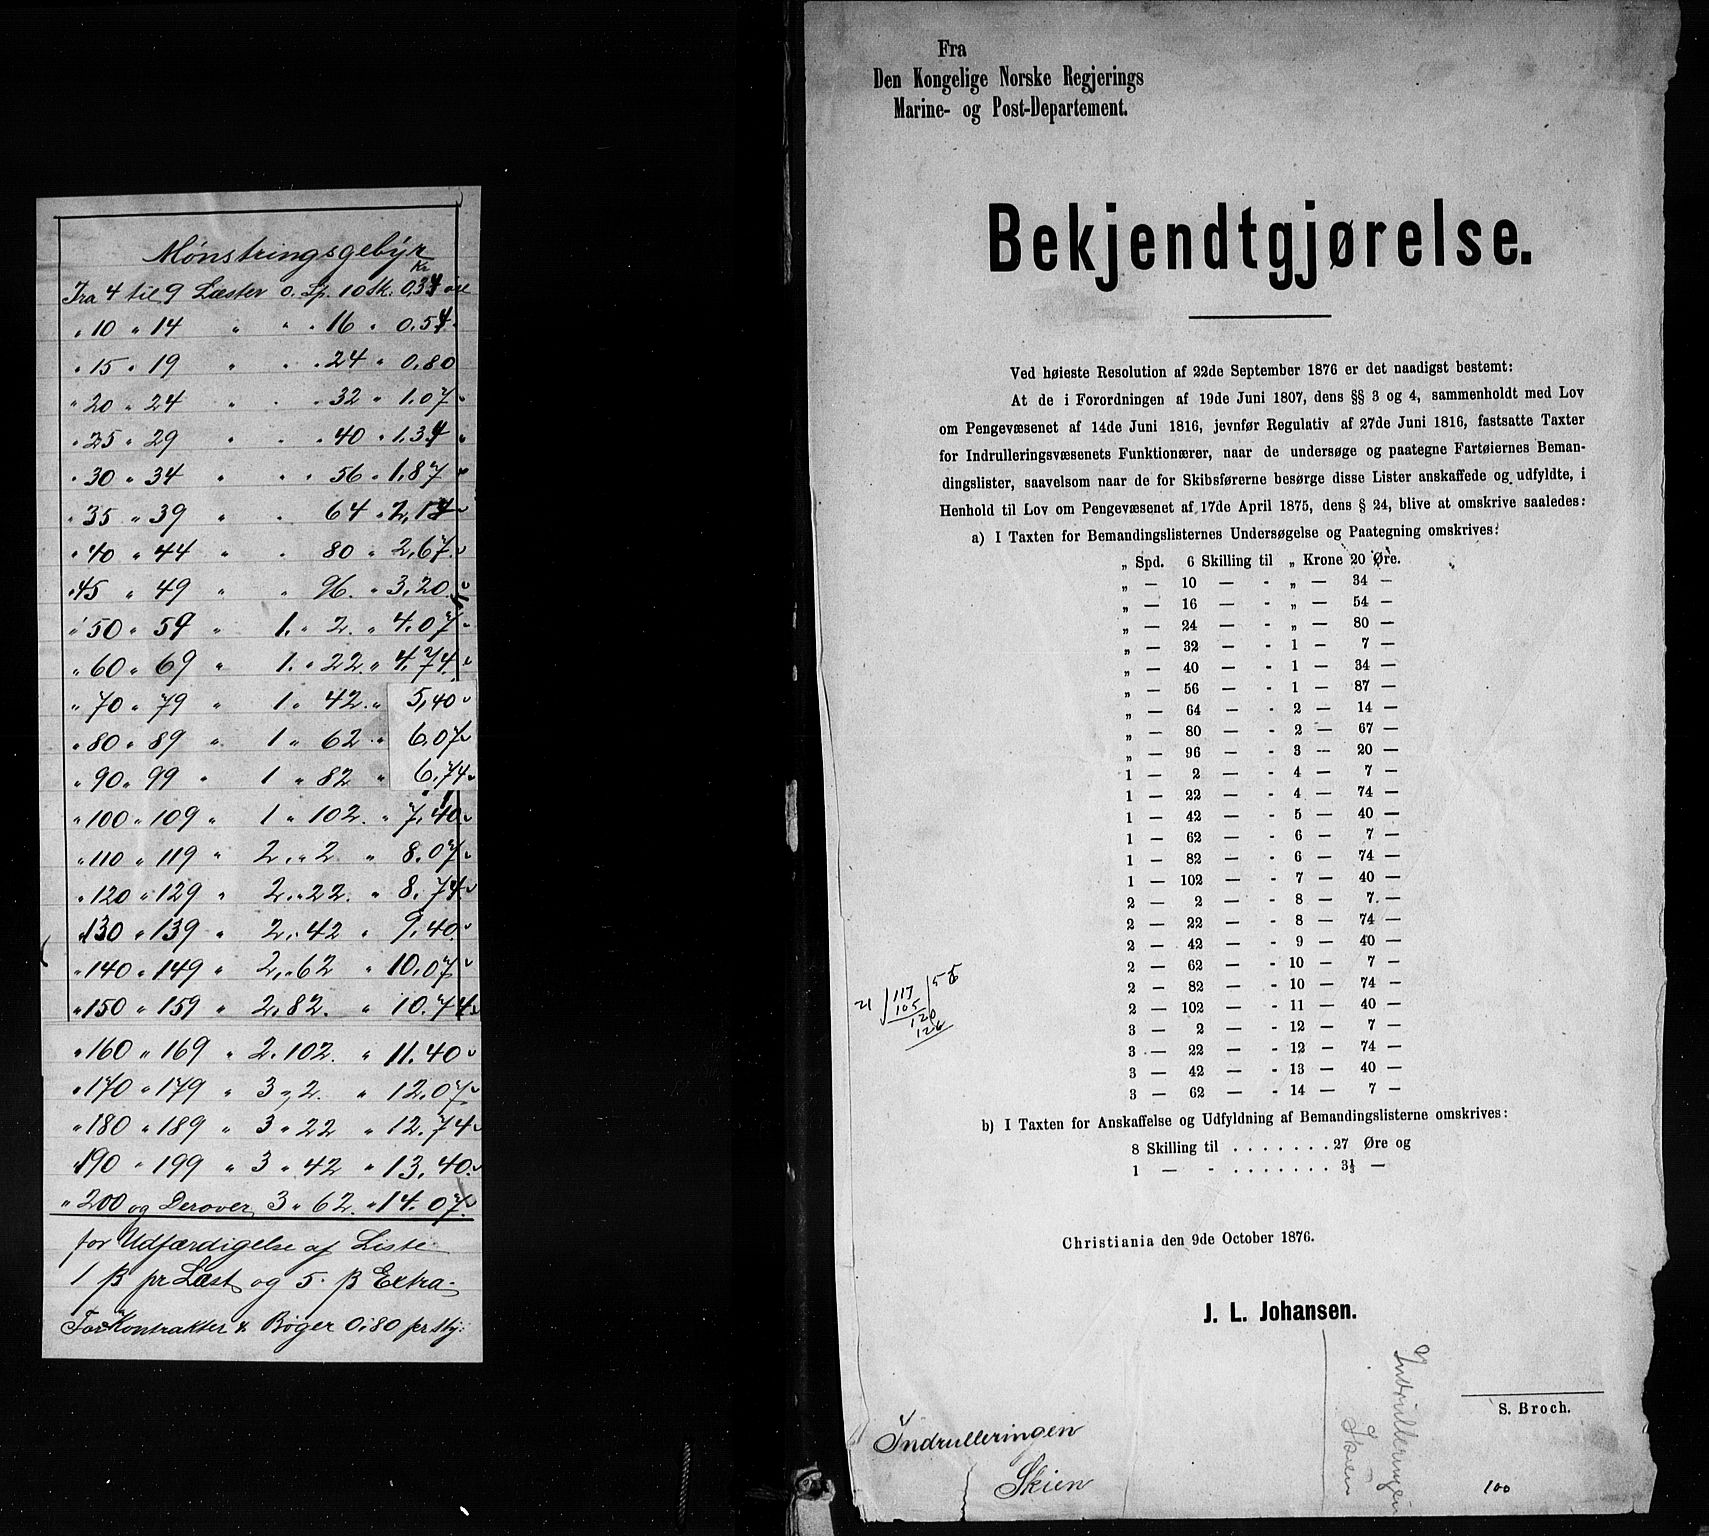 Mønstringsgebyr
Kr
Fra 4 til 9 Læster 0. Sp. 10 sk. 0,34 øre
" 10 " 14 " " " 16 " 0.54
" 15 " 19 " " " 24 " 0.80
" 20 " 24 " " " 32 " 1.07
" 25 " 29 " " " 40 " 1.34
" 30 " 34 " " " 56 " 1.87
" 35 " 39 " " 64 " 2,14
" 40 " 44 " " 80 " 2,67
" 45 " 49 " " 96. " 3,20
" 50 " 59 " 1. " 2. " 4.07
" 60 " 69 " 1. " 22. " 4.74
" 70 " 79 " 1 " 42. " 5,40
" 80 " 89 " 1 " 62 " 6,07
" 90 " 99 " 1 " 82 " 6,74
" 100 " 109 " 1 " 102. " 7,40
" 110 " 119 " 2. " 2 " 8.07
" 120 " 129 " 2. " 22. " 8.74
" 130 " 139 " 2. " 42 " 9,40
" 140 " 149 " 2. " 62 " 10.07
" 150 " 159 " 2. 82. " 10.74
" 160 " 169 " 2. 102. " 11.40
" 170 " 179 " 3 " 2. " 12.07
" 180 " 189 " 3 " 22 " 12.74
" 190 " 199 " 3 " 42 " 13,40
" 200 og Derover 3 " 62. " 14.07
for Udfærdigelse af Liste
1 ß pr Læst og 5. ß Extra
For Kontrakter & Bøger 0,80 pr stk:
Fra
Den Kongelige Norske Regjerings
Marine- og Post-Departement.
Bekjendtgjørelse.
Ved høieste Resolution af 22de September 1876 er det naadigst bestemt:
At de i Forordningen af 19de Juni 1807, dens §§ 3 og 4, sammenholdt med Lov
om Pengevæsenet af 14de Juni 1816, jevnfør Regulativ af 27de Juni 1816, fastsatte Taxter
for Indrulleringsvæsenets Funktionærer, naar de undersøge og paategne Fartøiernes Beman-
dingslister, saavelsom naar de for Skibsførerne besørge disse Lister anskaffede og udfyldte, i
Henhold til Lov om Pengevæsenet af 17de April 1875, dens § 24, blive at omskrive saaledes:
a) I Taxten for Bemandingslisternes Undersøgelse og Paategning omskrives:
„ Spd. 6 Skilling til „ Krone 20 Øre.
„ — 10 — - „ — 34 —
„ — 16 — - „ — 54 —
„ — 24 — - „ — 80 —
„ — 32 — - 1 — 7 —
„ — 40 — - 1 — 34 —
„ — 56 — - 1 — 87 —
„ — 64 — - 2 — 14 —
„ — 80 — - 2 — 67 —
„ — 96 — - 3 — 20 —
1 — 2 — - 4 — 7 —
1 — 22 — - 4 — 74 —
1 — 42 — - 5 — 40 —
1 — 62 — - 6 — 7 —
1 — 82 — - 6 — 74 —
1 — 102 — - 7 — 40 —
2 — 2 — - 8 — 7 —
2 — 22 — - 8 — 74 —
2 — 42 — - 9 — 40 —
2 — 62 — - 10 — 7 —
2 — 82 — - 10 — 74 —
2 — 102 — - 11 — 40 —
3 — 2 — - 12 — 7 —
3 — 22 — - 12 — 74 —
3 — 42 — - 13 — 40 —
3 — 62 — - 14 — 7 —
21 117
105
120
126
b) I Taxten for Anskaffelse og Udfyldning af Bemandingslisterne omskrives:
8 Skilling til . . . . . . . 27 Øre og
1 — - . . . . . . . 3⅓ —
Christiania den 9de October 1876.
J. L. Johansen.
S. Broch.
Indrulleringen
Skien
Indrulleringen
Skien
100